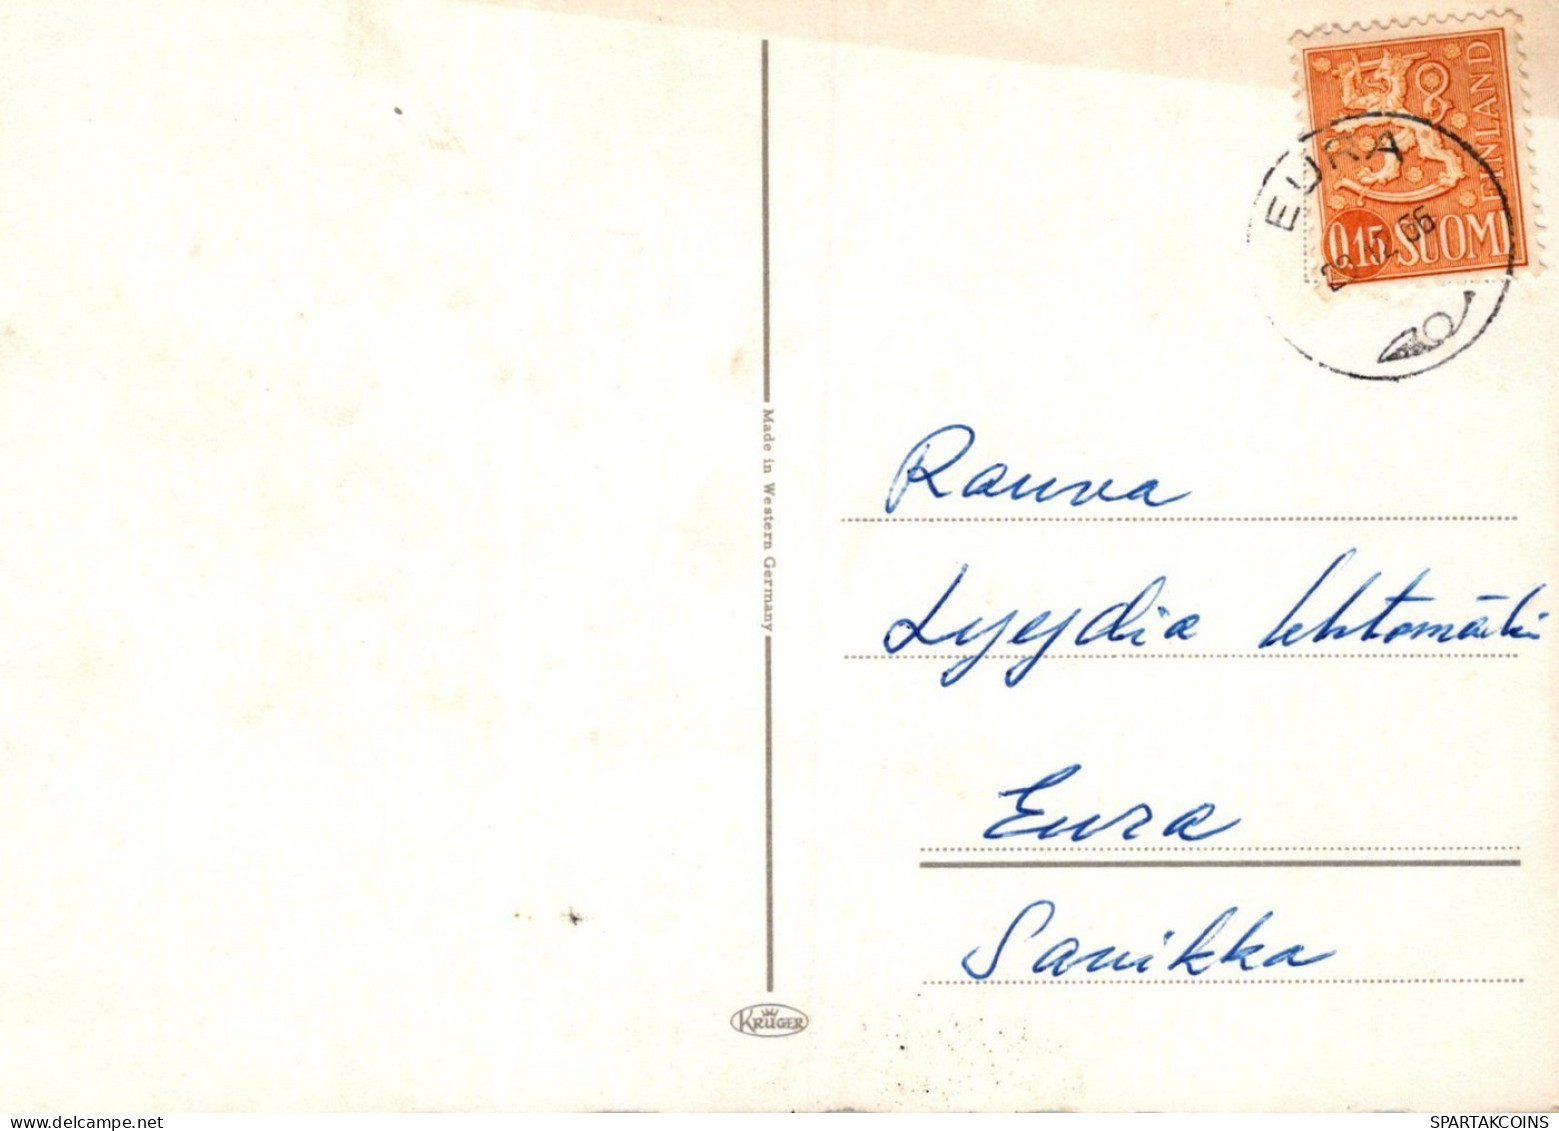 FINLAND
EURA
0,15 SUOMI
23 12 66
Made in Western Germany
Rauva
Lyydia Lehtomäki
Eura
Sauikka
KRÜGER
www.delcampe.net
SPARTAKCOINS